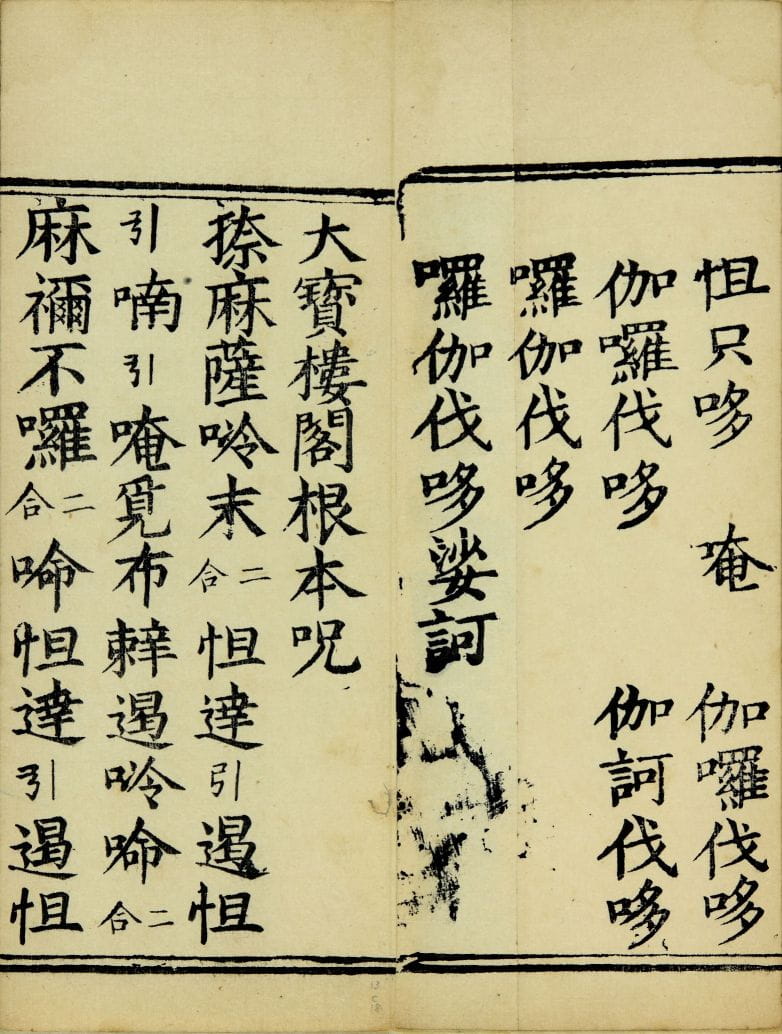 怛只哆 唵 伽囉伐哆
伽囉伐哆 伽訶伐哆
囉伽伐哆
囉伽伐哆娑訶
大寶樓閣根本呪
捺麻薩呤末二合怛達引遏怛
引喃引唵覓布辣遏呤喻二合
麻禰不囉二合喻怛達引遏怛